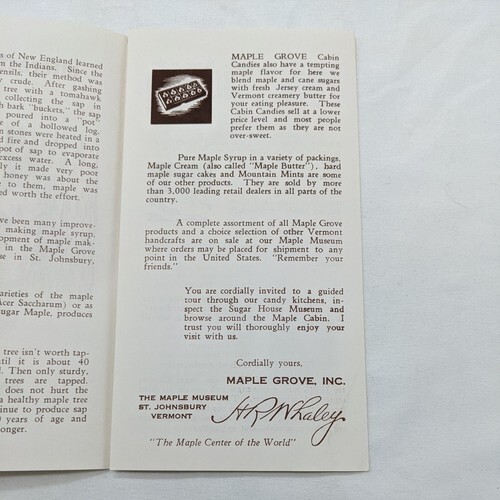 s of New England learned
m the Indians. Since the
ensils, their method was
y crude. After gashing
tree with a tomahawk
collecting the sap in
h bark "buckets," the sap
poured into a "pot"
e of a hollowed log.
n stones were heated in a
d fire and dropped into
pot of sap to evaporate
excess water. A long,
ly it made very poor
honey was about the
to them, maple was
ed worth the effort.
ve been many improve-
making maple syrup.
opment of maple mak-
in the Maple Grove
se in St. Johnsbury,
arieties of the maple
Acer Saccharum) or as
ugar Maple, produces
tree isn't worth tap-
til it is about 40
. Then only sturdy,
trees are tapped.
does not hurt the
a healthy maple tree
inue to produce sap
0 years of age and
onger.
MAPLE GROVE Cabin
Candies also have a tempting
maple flavor for here we
blend maple and cane sugars
with fresh Jersey cream and
Vermont creamery butter for
your eating pleasure. These
Cabin Candies sell at a lower
price level and most people
prefer them as they are not
over-sweet.
Pure Maple Syrup in a variety of packings,
Maple Cream (also called "Maple Butter"), hard
maple sugar cakes and Mountain Mints are some
of our other products. They are sold by more
than 3,000 leading retail dealers in all parts of the
country.
A complete assortment of all Maple Grove
products and a choice selection of other Vermont
handcrafts are on sale at our Maple Museum
where orders may be placed for shipment to any
point in the United States. "Remember your
friends."
You are cordially invited to a guided
tour through our candy kitchens, in-
spect the Sugar House Museum and
browse around the Maple Cabin. I
trust you will thoroughly enjoy your
visit with us.
Cordially yours,
MAPLE GROVE, INC.
THE MAPLE MUSEUM
ST. JOHNSBURY
VERMONT
H R Whaley
"The Maple Center of the World"